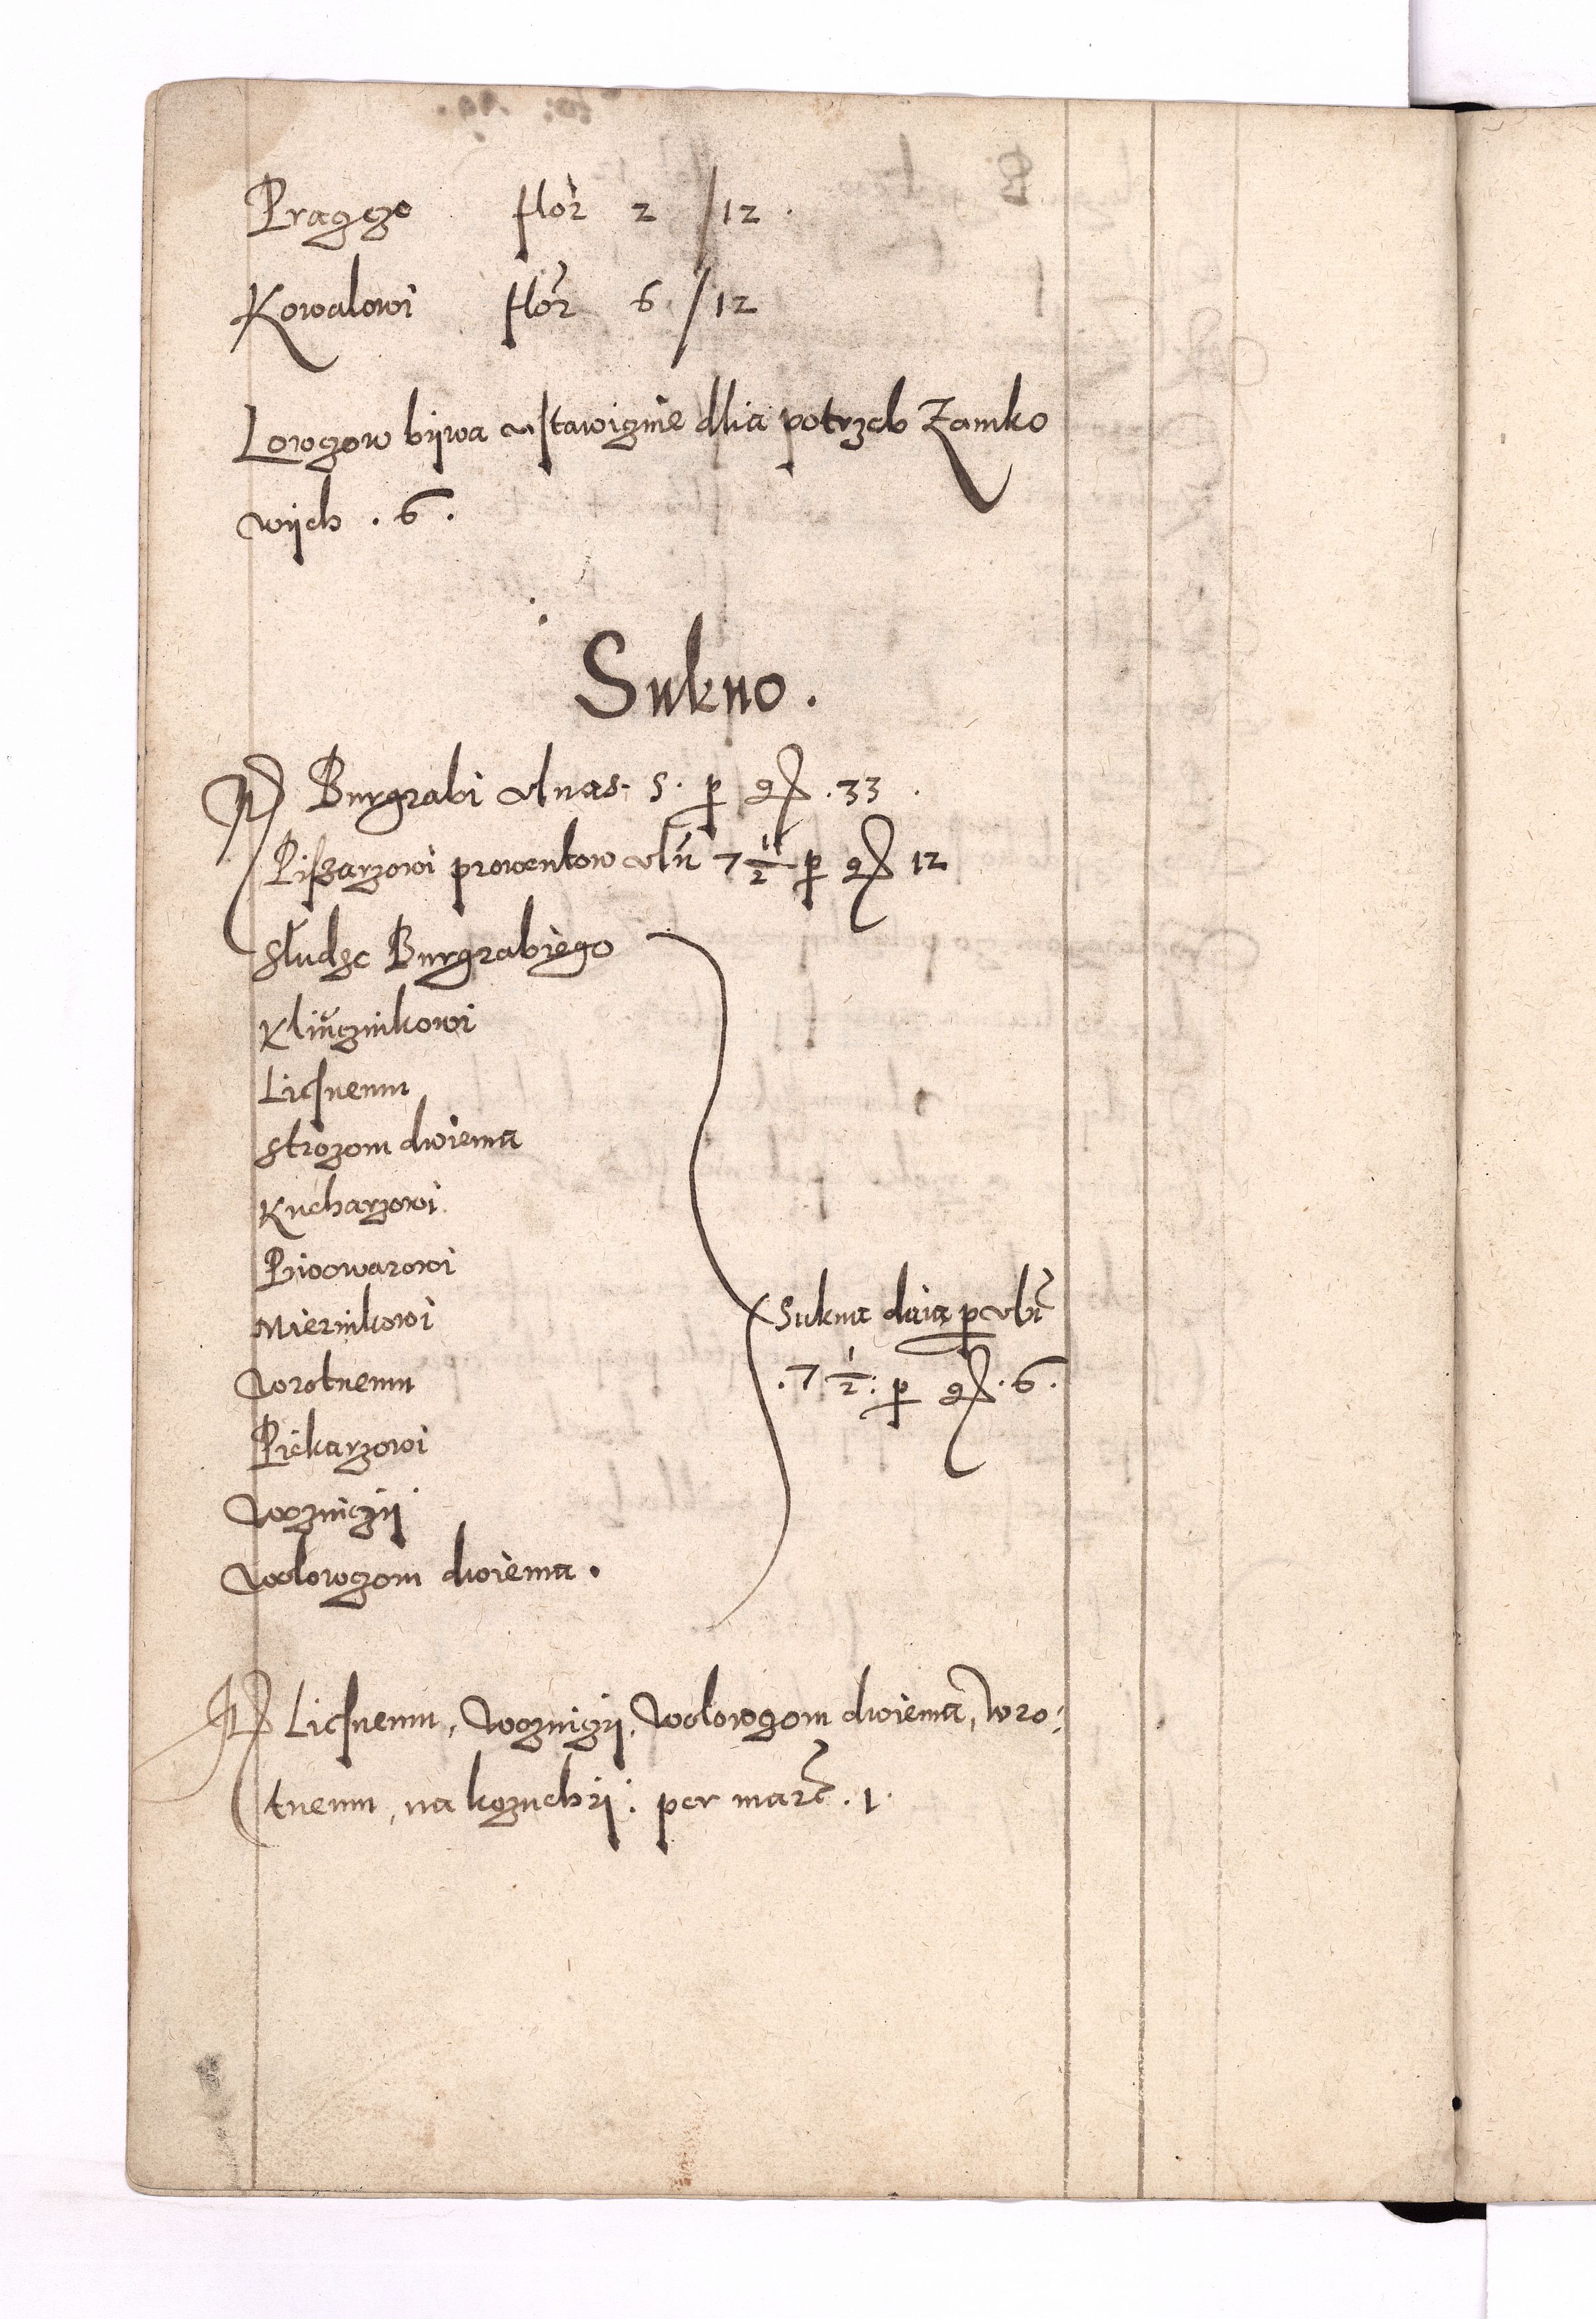 Praczce flor 2 /12.
Kowalowi flor 6 /12
Lowczow bywa ustawicznie dlia potrzeb Zamko
wych . 6 .
Sukno.
It Burgrabi ulnas. 5. p gr . 33 .
Piszarzowi prowentow uln 7 1/2 p gr 12
Słudze Burgrabiego
Kliucznikowi
Licsnemu
Strozom dwiema
Kucharzowi
Piwowarowi
Miernikowi
Wrotnemu
Piekarzowi
Wozniczy
Wolowczom dwiema.
Sukna daia p uln
. 7 1/2 . p gr . 6 .
It Licsnemu, Woznicy, Wolowczom dwiema, Wro:
tnemu, na kozuchy : per marc . 1.